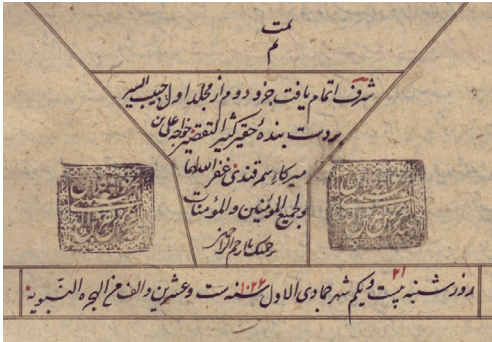 تمت
م
شرف اتمام یافت جزو دوم از مجلد اول حبیب السیر
بردست بندهٔ حقیر کثیر التقصیر خواجه علی بن
میرکاء سمرقندی غفر الله لهما
ولجمیع المؤمنین والمؤمنات
برحمتک یا ارحم الراحمین
روز شنبه بیست و یکم ۲۱ شهر جمادی الاول سنه ۱۰۲۶ ست و عشرین والف من الهجرة النبویة